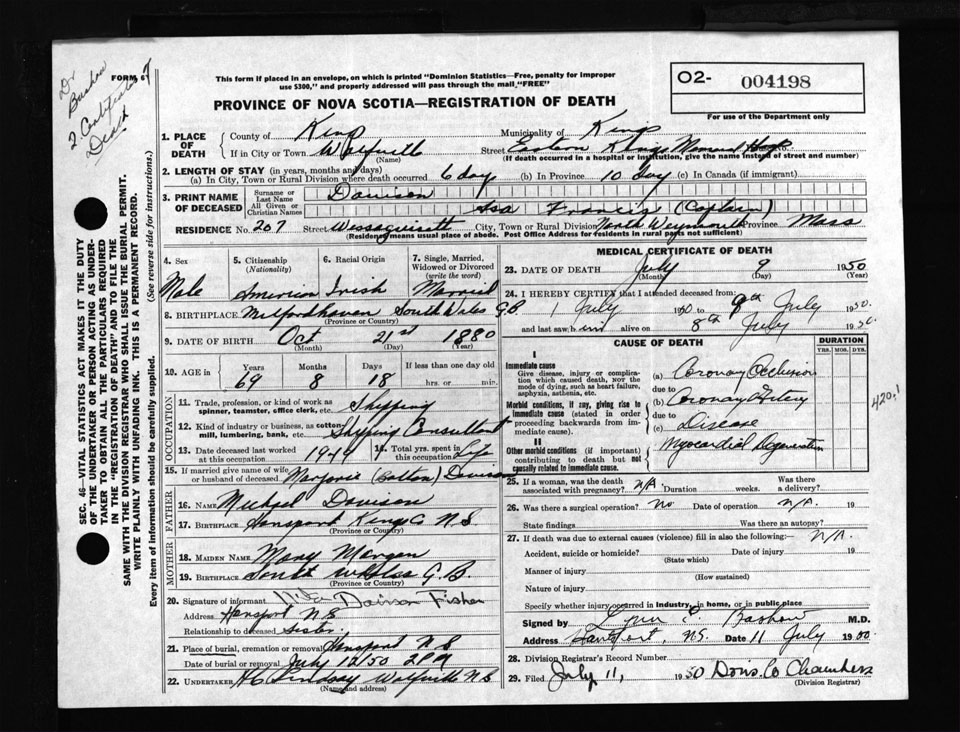 Dr
Bashaw
2 Certificates
Death
FORM 6
This form if placed in an envelope, on which is printed "Dominion Statistics—Free, penalty for improper
use $300," and properly addressed will pass through the mail "FREE"
PROVINCE OF NOVA SCOTIA—REGISTRATION OF DEATH
O2- 004198
For use of the Department only
SEC. 46—VITAL STATISTICS ACT MAKES IT THE DUTY
OF THE UNDERTAKER OR PERSON ACTING AS UNDER-
TAKER TO OBTAIN ALL THE PARTICULARS REQUIRED
IN THE "REGISTRATION OF DEATH" AND TO FILE THE
SAME WITH THE DIVISION REGISTRAR WHO SHALL ISSUE THE BURIAL PERMIT.
WRITE PLAINLY WITH UNFADING INK. THIS IS A PERMANENT RECORD.
Every item of information should be carefully supplied. (See reverse side for instructions.)
1. PLACE OF DEATH County of Kings Municipality of Kings
If in City or Town Wolfville (Name) Street Eastern Kings Memorial Hosp
(If death occurred in a hospital or institution, give the name instead of street and number)
2. LENGTH OF STAY (in years, months and days)
(a) In City, Town or Rural Division where death occurred 6 day (b) In Province 10 Day (c) In Canada (if immigrant)
3. PRINT NAME OF DECEASED Surname or Last Name Davison
All Given or Christian Names Asa Francis (Captain)
RESIDENCE No. 207 Street Wessaguisett City, Town or Rural Division North Weymouth Province Mass
(Residency means usual place of abode. Post Office Address for residents in rural parts not sufficient)
4. Sex Male
5. Citizenship (Nationality) American
6. Racial Origin Irish
7. Single, Married, Widowed or Divorced (write the word) Married
8. BIRTHPLACE Milfordhaven South Wales G.B.
(Province or Country)
9. DATE OF BIRTH Oct (Month) 21st (Day) 1880 (Year)
10. AGE in Years 69 Months 8 Days 18 If less than one day old hrs. or min.
OCCUPATION
11. Trade, profession, or kind of work as spinner, teamster, office clerk, etc. Shipping
12. Kind of industry or business, as cotton mill, lumbering, bank, etc. Shipping Consultant
13. Date deceased last worked at this occupation 1944 14. Total yrs. spent in this occupation Life
15. If married give name of wife or husband of deceased Marjorie (Cotton) Davison
FATHER
16. Name Michael Davison
17. Birthplace Hansport Kings Co N.S
(Province or Country)
MOTHER
18. Maiden Name Mary Morgan
19. Birthplace South Wales G.B.
(Province or Country)
20. Signature of informant Davison Fisher
Address Hansport N S
Relationship to deceased sister
21. Place of burial, cremation or removal Hansport N S
Date of burial or removal July 12/50 2 PM
22. UNDERTAKER H C Lindsay Wolfville N S
(Name and address)
MEDICAL CERTIFICATE OF DEATH
23. DATE OF DEATH July (Month) 9 (Day) 1950
24. I HEREBY CERTIFY that I attended deceased from:
1 July 1950 to 9th July 1950.
and last saw him alive on 8th July 1950.
CAUSE OF DEATH DURATION
YRS. MOS. DYS.
I
Immediate cause
Give disease, injury or complication which caused death, NOT the mode of dying, such as heart failure, asphyxia, asthenia, etc.
(a) Coronary Occlusion
due to
Morbid conditions, if any, giving rise to immediate cause (stated in order proceeding backwards from immediate cause).
(b) Coronary Artery
due to
(c) Disease
420.1
II
Other morbid conditions (if important) contributing to death but not causally related to immediate cause.
Myocardial Degeneration
25. If a woman, was the death associated with pregnancy? N/A Duration weeks. Was there a delivery?
26. Was there a surgical operation? No Date of operation N/A. 19
State findings Was there an autopsy?
27. If death was due to external causes (violence) fill in also the following:— N/A.
Accident, suicide or homicide? (State which) Date of injury 19
Manner of injury (How sustained)
Nature of injury
Specify whether injury occurred in industry, in home, or in public place
Signed by E. Bashaw M.D.
Address Hantsport, N.S. Date 11 July 1950
28. Division Registrar's Record Number
29. Filed July 11, 1950 Chambers
(Division Registrar)